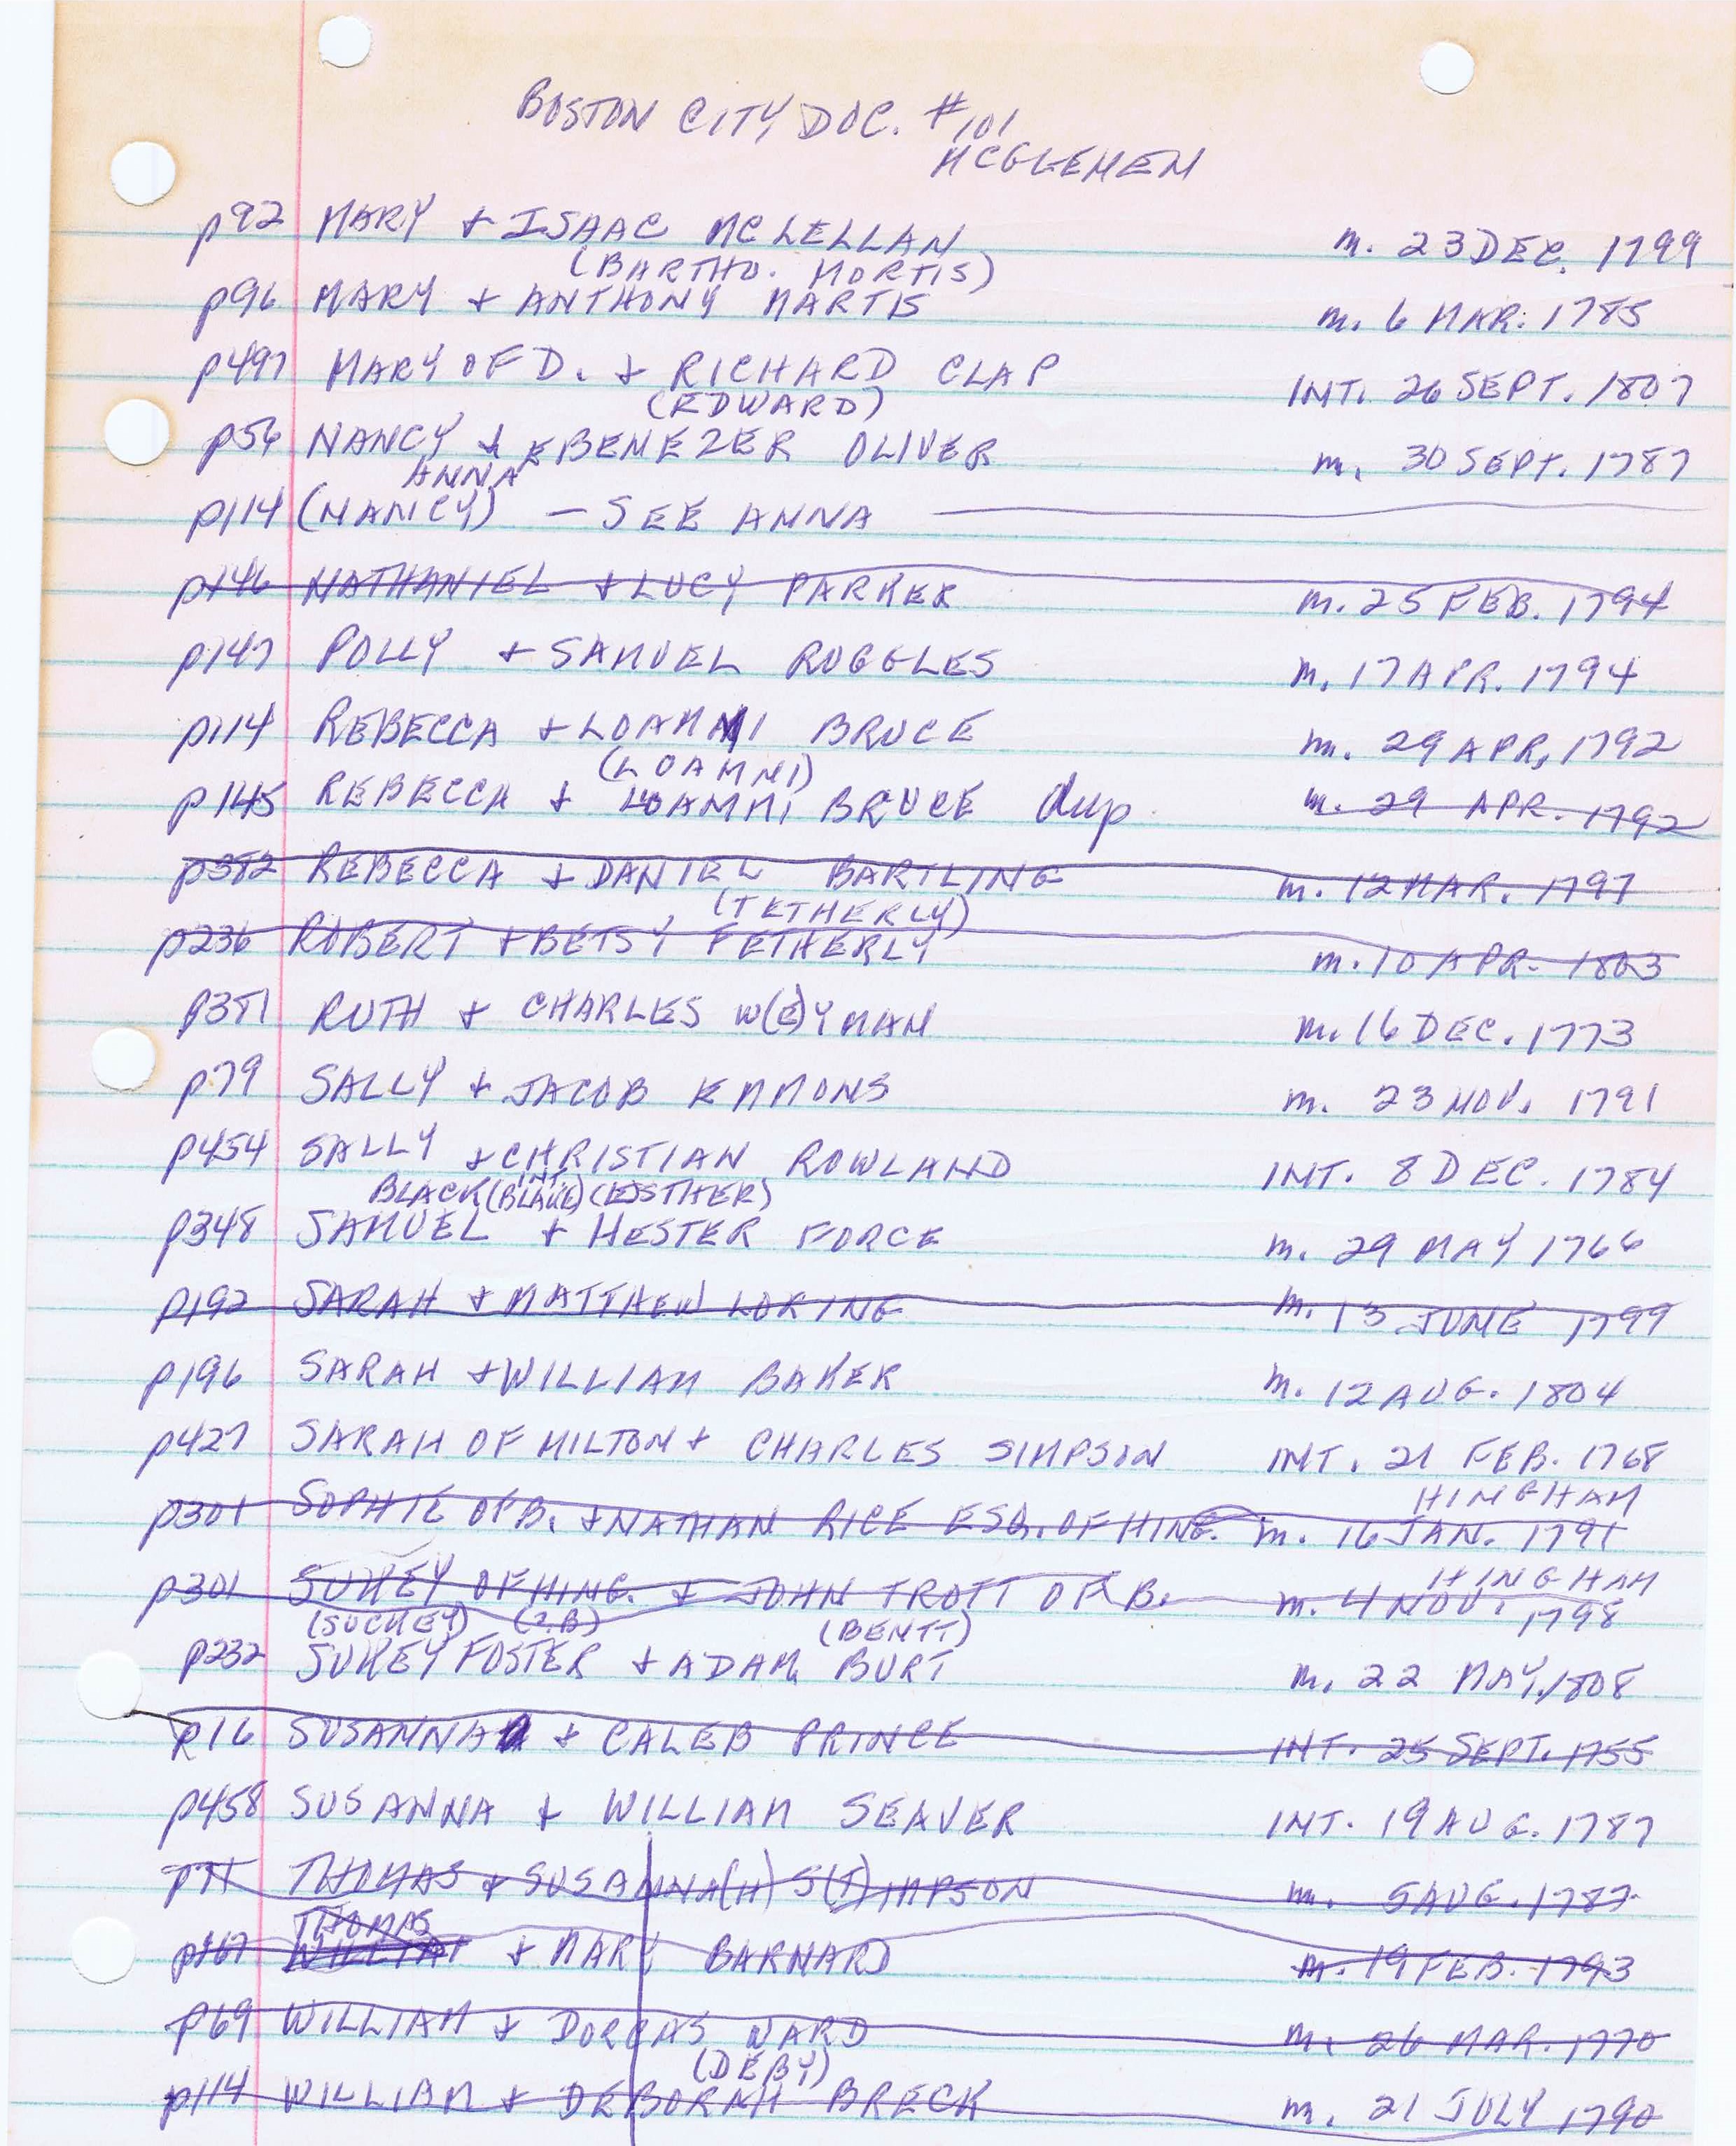 BOSTON CITY DOC. #101
MCGLENEN
p92 MARY + ISAAC MCLELLAN m. 23 DEC. 1799
(BARTHO. MORTIS)
p96 MARY + ANTHONY MARTIS m. 6 MAR. 1785
p497 MARY OF D. + RICHARD CLAP INT. 26 SEPT. 1807
(EDWARD)
p56 NANCY + EBENEZER OLIVER m. 30 SEPT. 1787
ANNA
p114 (NANCY) — SEE ANNA
p146 NATHANIEL + LUCY PARKER m. 25 FEB. 1794
p147 POLLY + SAMUEL RUGGLES m. 17 APR. 1794
p114 REBECCA + LOAMMI BRUCE m. 29 APR. 1792
(LOAMNI)
p145 REBECCA + LOAMMI BRUCE dup m. 29 APR. 1792
p382 REBECCA + DANIEL BARTLING m. 12 MAR. 1797
(TETHERLY)
p236 ROBERT + BETSY FETHERLY m. 10 APR. 1803
p381 RUTH + CHARLES W(E)YMAN m. 16 DEC. 1773
p79 SALLY + JACOB EMMONS m. 23 NOV. 1791
p454 SALLY + CHRISTIAN ROWLAND INT. 8 DEC. 1784
INT.
BLACK (BLAKE) (ESTHER)
p348 SAMUEL + HESTER FORCE m. 29 MAY 1766
p192 SARAH + MATTHEW LORING m. 13 JUNE 1799
p196 SARAH + WILLIAM BAKER m. 12 AUG. 1804
p427 SARAH OF MILTON + CHARLES SIMPSON INT. 21 FEB. 1768
HINGHAM
p301 SOPHIE OF B. + NATHAN RICE ESQ. OF HING. m. 16 JAN. 1791
HINGHAM
p301 SUKEY OF HING. + JOHN TROTT OF B. m. 4 NOV. 1798
(SUCKEY) (2.B) (BENTT)
p232 SUKEY FOSTER + ADAM BURT m. 22 MAY 1808
p16 SUSANNA + CALEB PRINCE INT. 25 SEPT. 1755
p458 SUSANNA + WILLIAM SEAVER INT. 19 AUG. 1787
THOMAS + SUSANNA(H) S(T)IMPSON m. 5 AUG. 1787
THOMAS
p167 WILLIAM + MARY BARNARD m. 19 FEB. 1793
p69 WILLIAM + DORCAS WARD m. 26 MAR. 1770
(DEBY)
p114 WILLIAM + DEBORAH BRECK m. 21 JULY 1790